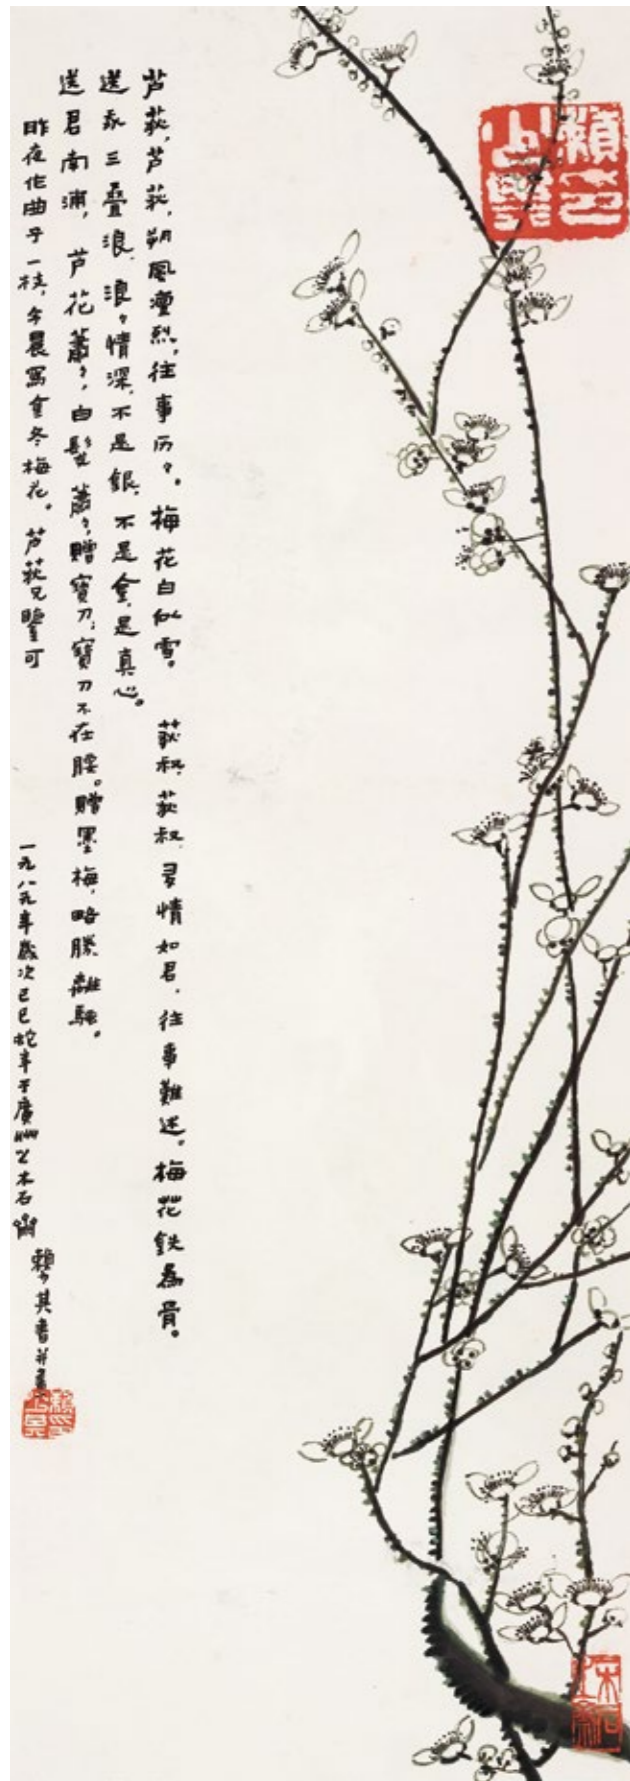 芦荻,芦荻,朔風凛烈,往事历々。梅花白似雪。荻叔,荻叔,多情如君,往事難述。梅花鉄為骨。
送永三叠浪,浪々情深,不是銀,不是金,是真心。
送君南浦,芦花蕭々,白髮蕭々,贈寶刀,寶刀不在腰。贈墨梅,略勝離騷。
昨夜作曲子一枝,今晨寫金冬梅花。芦荻兄鑒可
一九八九年歲次己巳蛇年于廣州以木石齋
賴少其書并畫